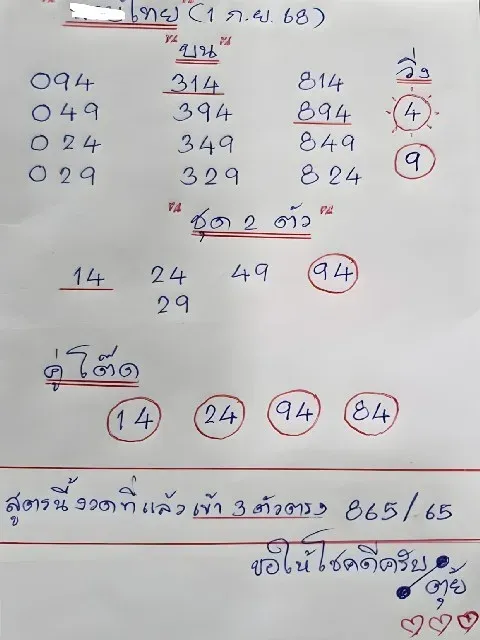 ไทย (1 ก.ย. 68)
บน วิ่ง
094 314 814
049 394 894 4
024 349 849 9
029 329 824
ชุด 2 ตัว
14 24 49 94
29
คู่โต๊ด
14 24 94 84
สูตรนี้งวดที่แล้วเข้า 3 ตัวตรง 865/65
ขอให้โชคดีครับ
ตุ้ย